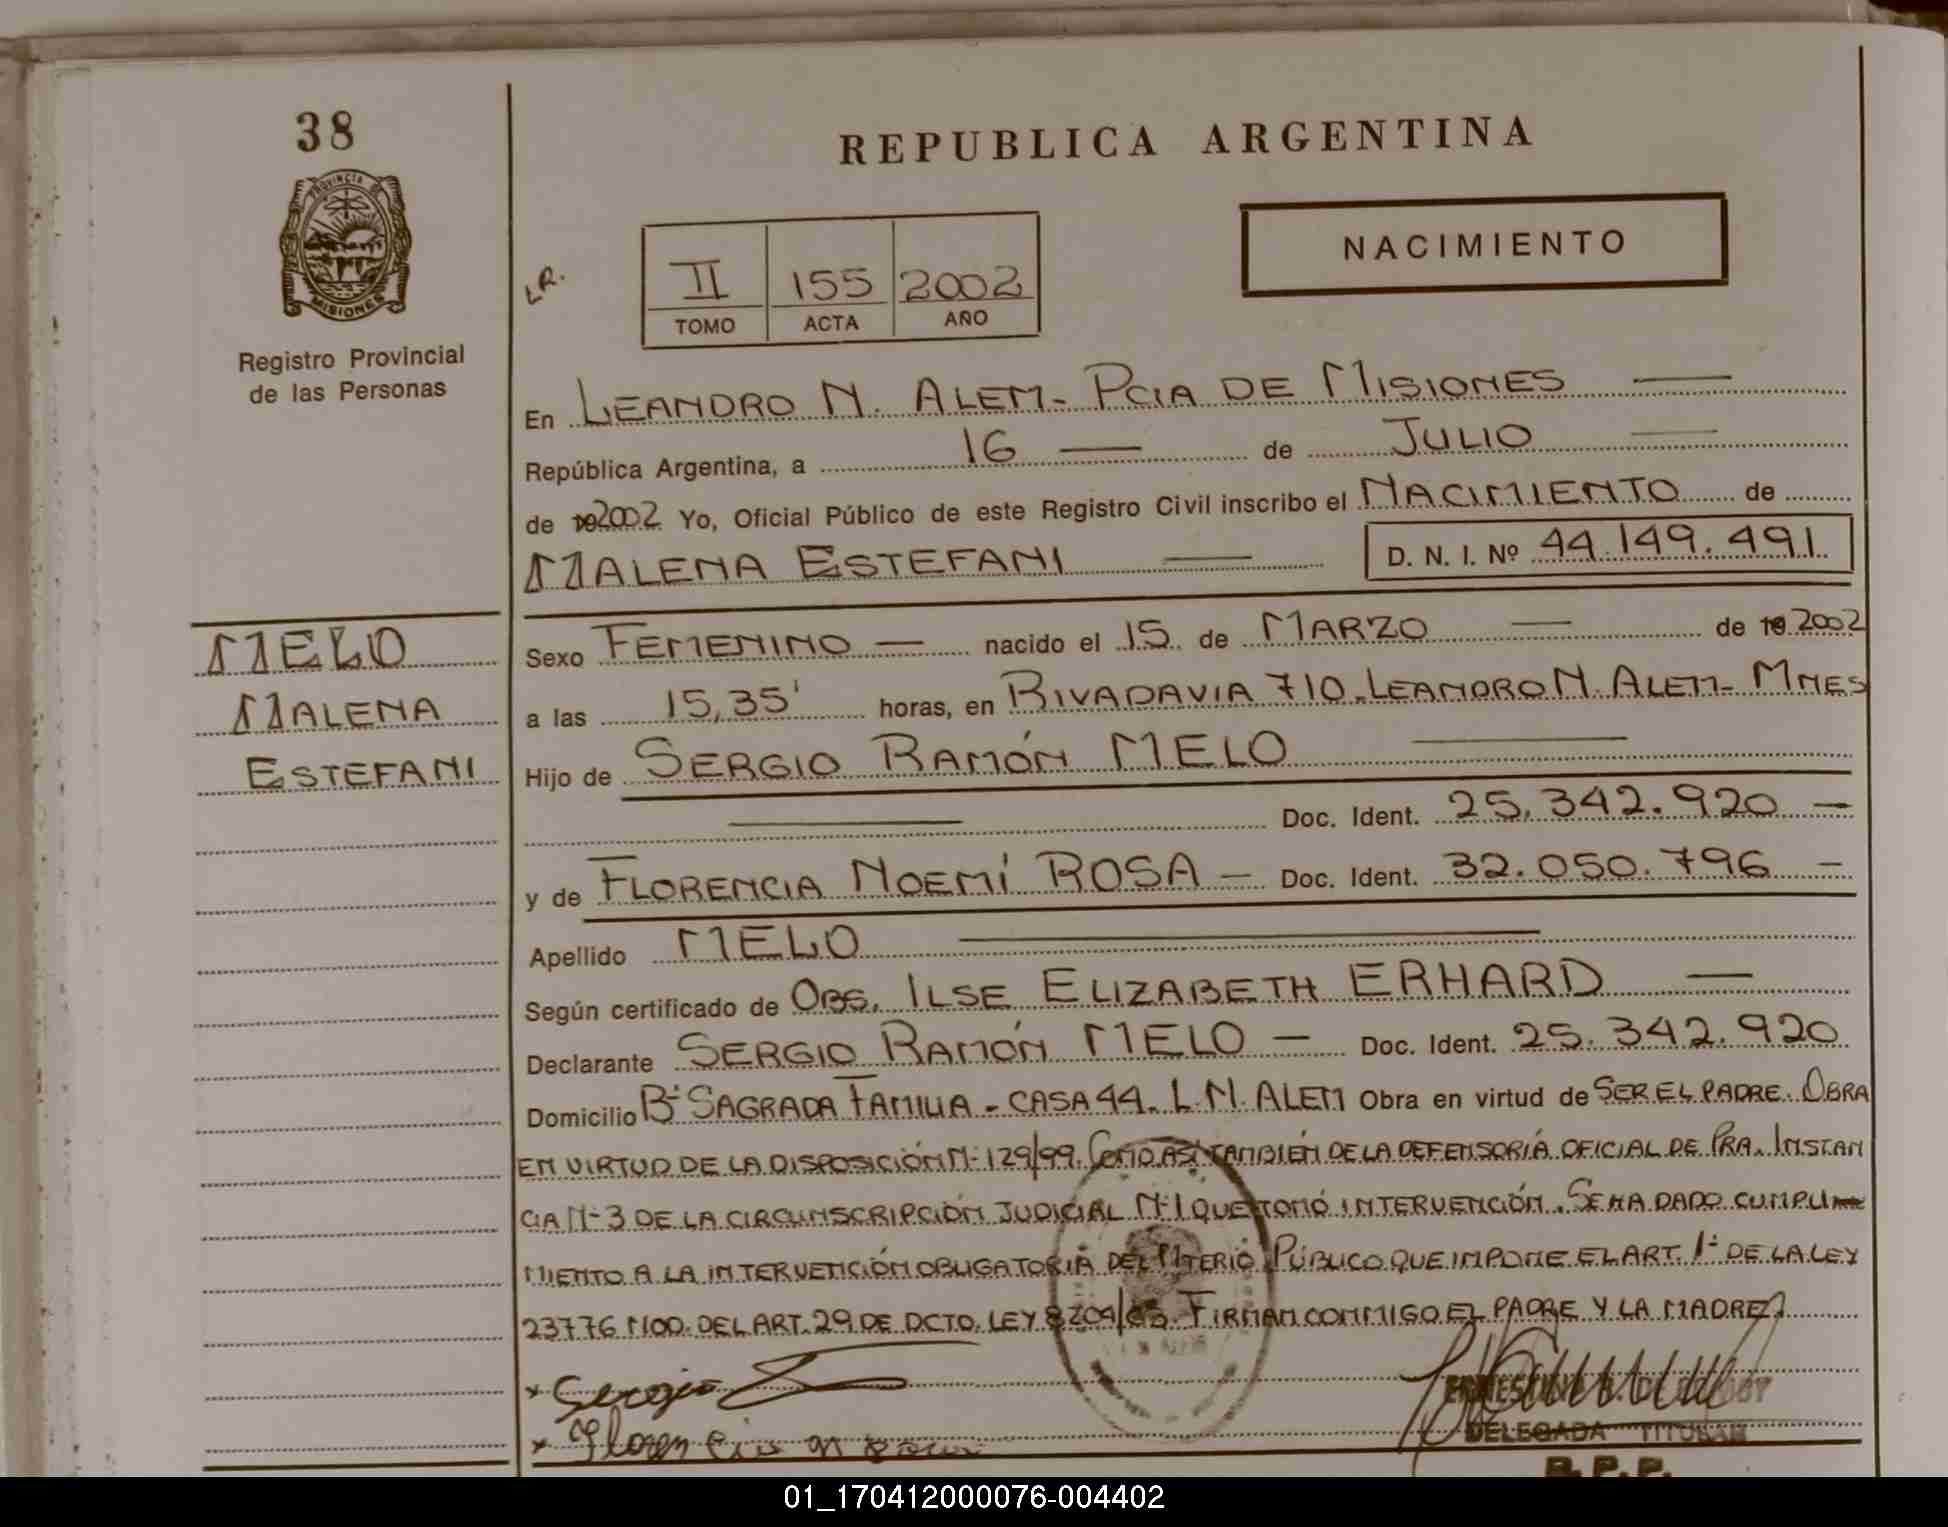 38
PROVINCIA DE
MISIONES
Registro Provincial
de las Personas
REPUBLICA ARGENTINA
NACIMIENTO
LR.
II 155 2002
TOMO ACTA AÑO
En LEANDRO N. ALEM - PCIA DE MISIONES
República Argentina, a 16 de JULIO
de 192002 Yo, Oficial Público de este Registro Civil inscribo el NACIMIENTO de
MALENA ESTEFANI D. N. I. Nº 44.149.491
MELO
MALENA
ESTEFANI
Sexo FEMENINO nacido el 15 de MARZO de 19 2002
a las 15,35' horas, en RIVADAVIA 710. LEANDRO N. ALEM - MNES
Hijo de SERGIO RAMÓN MELO
Doc. Ident. 25.342.920 -
y de FLORENCIA NOEMÍ ROSA - Doc. Ident. 32.050.796 -
Apellido MELO
Según certificado de OBS. ILSE ELIZABETH ERHARD
Declarante SERGIO RAMÓN MELO - Doc. Ident. 25.342.920
Domicilio Bº SAGRADA FAMILIA - CASA 44. L.N. ALEM Obra en virtud de SER EL PADRE. OBRA
EN VIRTUD DE LA DISPOSICIÓN Nº 129/99. COMO ASÍ TAMBIÉN DE LA DEFENSORÍA OFICIAL DE PRA. INSTAN
CIA Nº 3 DE LA CIRCUNSCRIPCIÓN JUDICIAL Nº 1 QUE TOMÓ INTERVENCIÓN. SE HA DADO CUMPLI
MIENTO A LA INTERVENCIÓN OBLIGATORIA DEL MTERIO PÚBLICO QUE IMPONE EL ART. 1º DE LA LEY
23776 MOD. DEL ART. 29 DE DCTO. LEY 8204/63. FIRMAN CONMIGO EL PADRE Y LA MADRE
x Sergio
x Florencia
DELEGADA TITULAR
R.P.P.
01_170412000076-004402